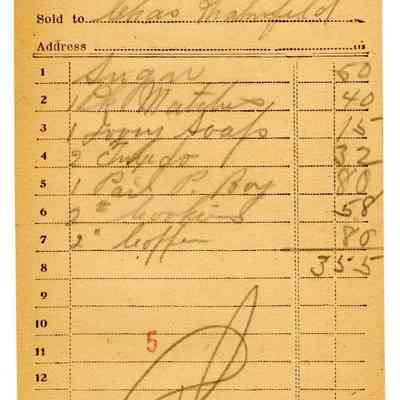 Sold to Chas
Address
1 Sugar 60
2 1 Pk Matches 40
3 1 Ivory Soap 15
4 2 32
5 1 Pail P. Boy 80
6 2 " Cookies 58
7 2 " Coffee 80
8 3 55
9
10
11 5
12